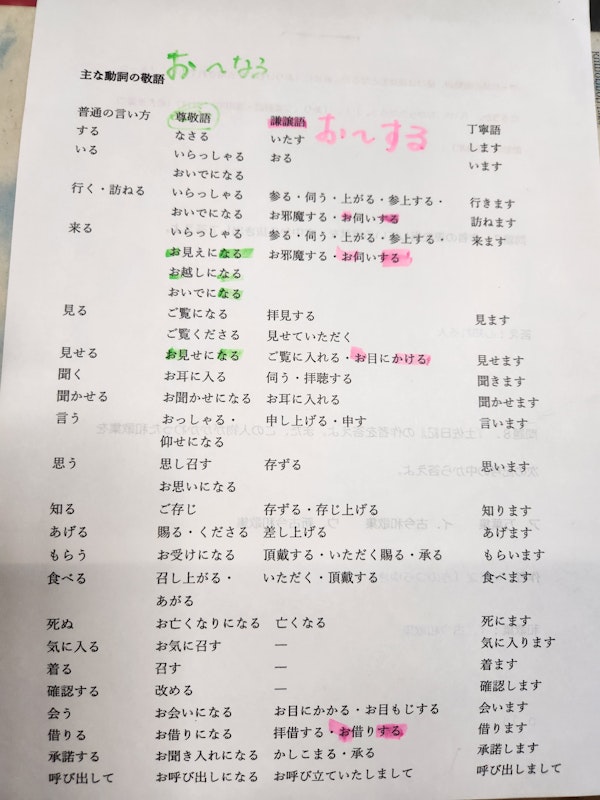 主な動詞の敬語 お〜なる
普通の言い方 尊敬語 謙譲語 お〜する 丁寧語
する なさる いたす します
いる いらっしゃる おる います
おいでになる
行く・訪ねる いらっしゃる 参る・伺う・上がる・参上する・ 行きます
おいでになる お邪魔する・お伺いする 訪ねます
来る いらっしゃる 参る・伺う・上がる・参上する・ 来ます
お見えになる お邪魔する・お伺いする
お越しになる
おいでになる
見る ご覧になる 拝見する 見ます
ご覧くださる 見せていただく
見せる お見せになる ご覧に入れる・お目にかける 見せます
聞く お耳に入る 伺う・拝聴する 聞きます
聞かせる お聞かせになる お耳に入れる 聞かせます
言う おっしゃる・ 申し上げる・申す 言います
仰せになる
思う 思し召す 存ずる 思います
お思いになる
知る ご存じ 存ずる・存じ上げる 知ります
あげる 賜る・くださる 差し上げる あげます
もらう お受けになる 頂戴する・いただく賜る・承る もらいます
食べる 召し上がる・ いただく・頂戴する 食べます
あがる
死ぬ お亡くなりになる 亡くなる 死にます
気に入る お気に召す ― 気に入ります
着る 召す ― 着ます
確認する 改める ― 確認します
会う お会いになる お目にかかる・お目もじする 会います
借りる お借りになる 拝借する・お借りする 借ります
承諾する お聞き入れになる かしこまる・承る 承諾します
呼び出して お呼び出しになる お呼び立ていたしまして 呼び出しまして